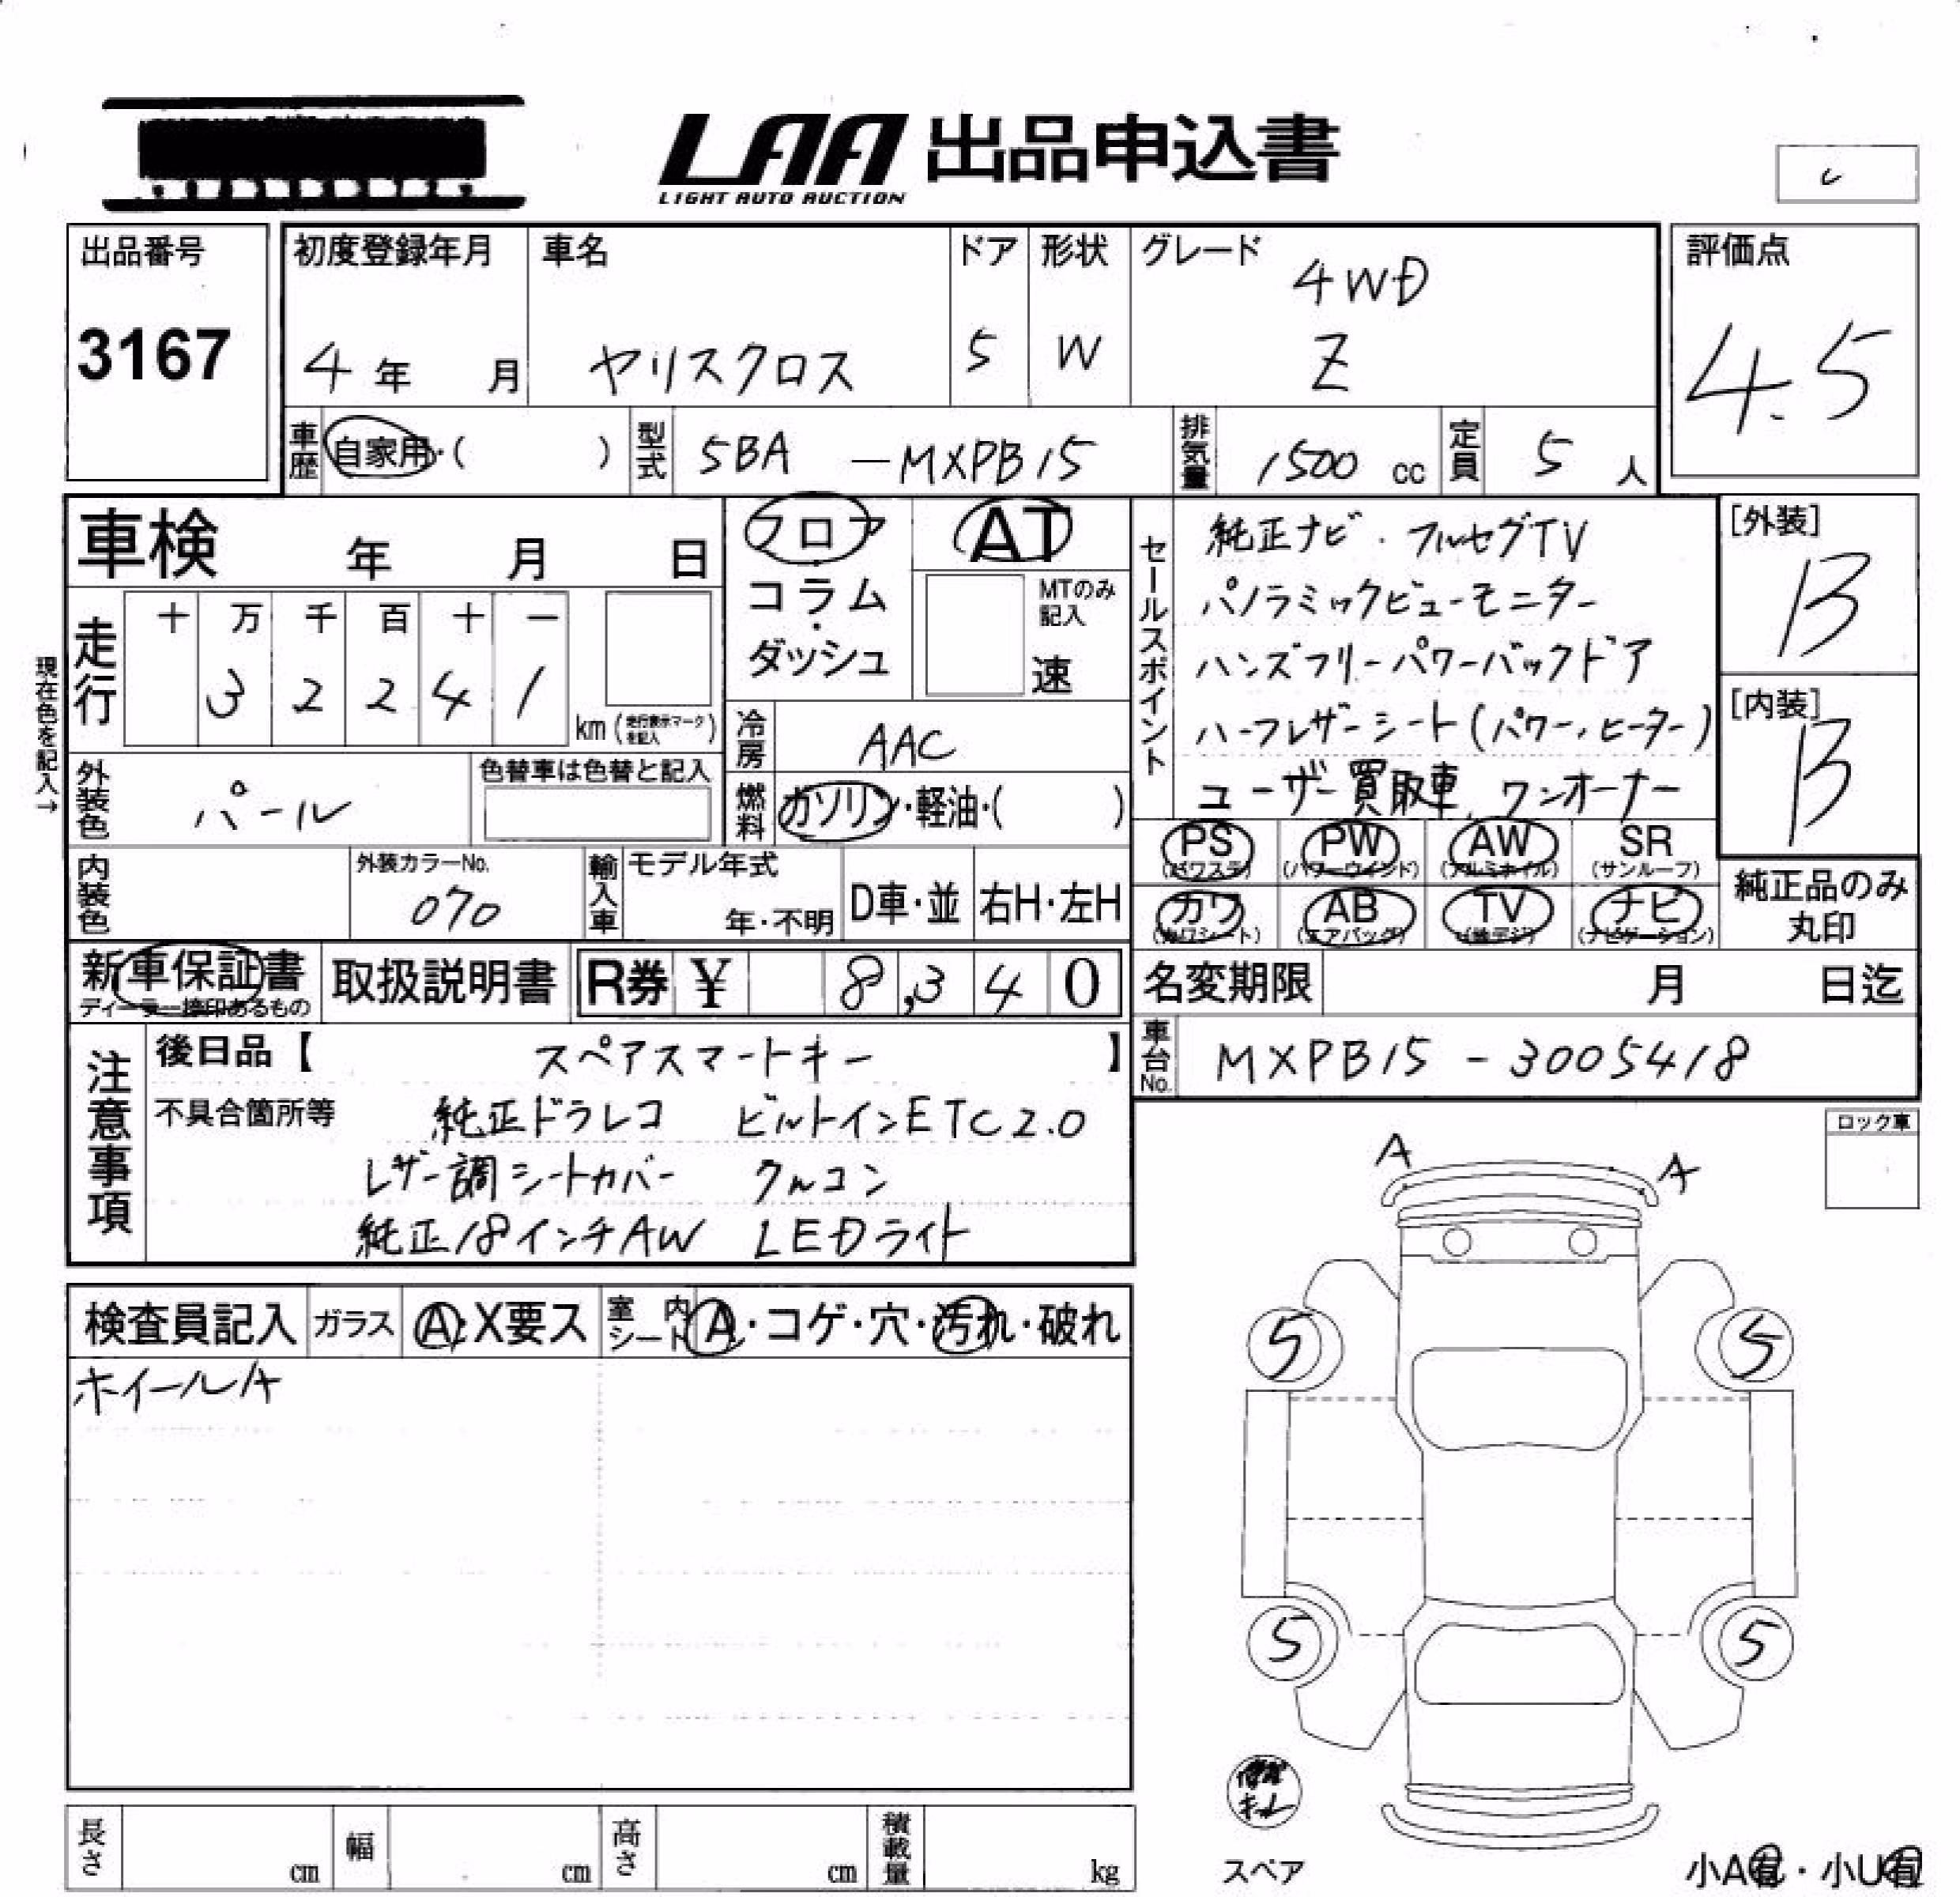 LAA 出品申込書
LIGHT AUTO AUCTION
出品番号
3167
初度登録年月
4年 月
車名
ヤリスクロス
ドア
5
形状
W
グレード
4WD
Z
評価点
4.5
車歴 自家用・( )
型式 5BA -MXPB15
排気量 1500 cc
定員 5 人
車検 年 月 日
フロア・
コラム・
ダッシュ
AT
MTのみ記入
速
現在色を記入→
走行
十 万 千 百 十 一
3 2 2 4 1
km (走行表示マークを記入)
冷房 AAC
燃料 ガソリン・軽油・( )
外装色 パール
色替車は色替と記入
内装色
外装カラーNo.
070
輸入車
モデル年式
年・不明
D車・並
右H・左H
セールスポイント
純正ナビ・フルセグTV
パノラミックビューモニター
ハンズフリーパワーバックドア
ハーフレザーシート(パワー、ヒーター)
ユーザー買取車、ワンオーナー
[外装]
B
[内装]
B
PS (パワステ)
PW (パワーウインド)
AW (アルミホイル)
SR (サンルーフ)
カワ (カワシート)
AB (エアバッグ)
TV (地デジ)
ナビ (ナビゲーション)
純正品のみ
丸印
新車保証書
ディーラー捺印あるもの
取扱説明書
R券 ¥ 8,340
名変期限 月 日迄
車台No. MXPB15 - 3005418
注意事項
後日品【 スペアスマートキー 】
不具合箇所等 純正ドラレコ ビルトインETC2.0
レザー調シートカバー クルコン
純正18インチAW LEDライト
ロック車
検査員記入
ガラス A・X要ス
室内シート A・コゲ・穴・汚れ・破れ
ホイールA
A A
5 5
5 5
スペア
長さ cm
幅 cm
高さ cm
積載量 kg
小A有・小U有